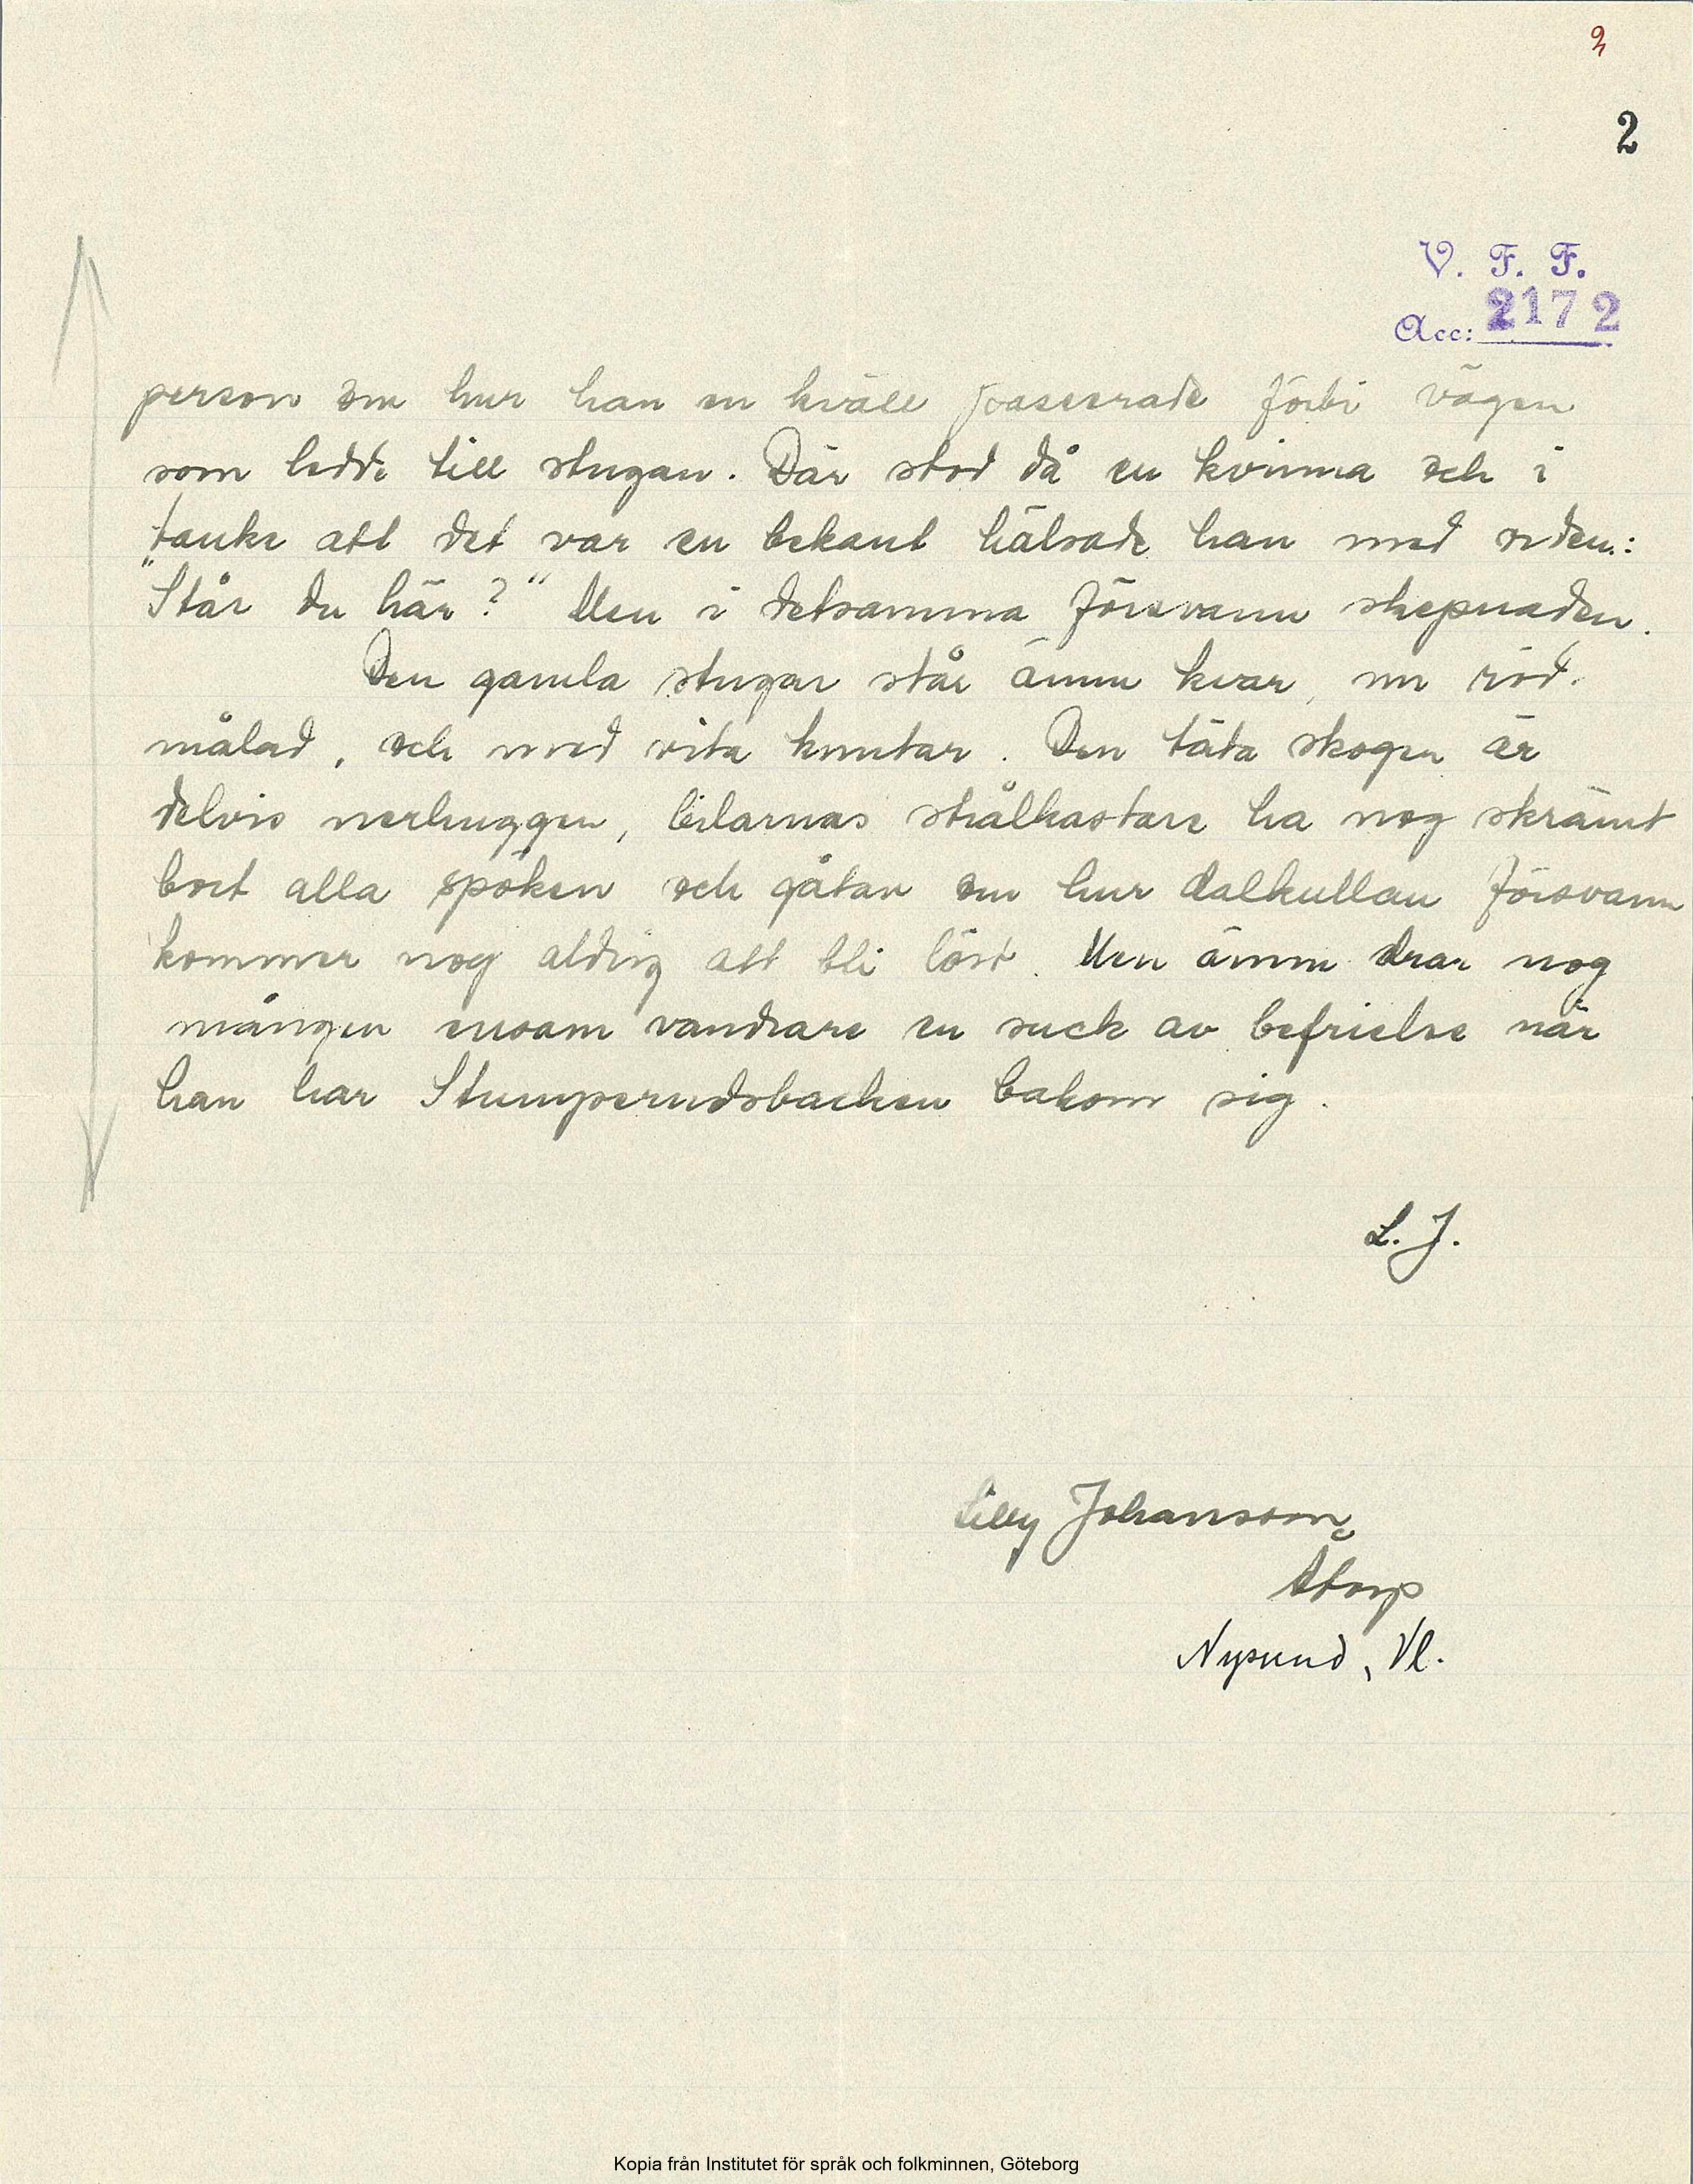 2
2
V. F. F.
Acc: 2172
person om hur han en kväll passerade förbi vägen
som ledde till stugan. Där stod då en kvinna och i
tanke att det var en bekant hälsade han med orden:
"Står du här?" Men i detsamma försvann skepnaden.
Den gamla stugan står ännu kvar, nu röd-
målad, och med vita knutar. Den täta skogen är
delvis nerhuggen, bilarnas strålkastare ha nog skrämt
bort alla spöken och gåtan om hur dalkullan försvann
kommer nog aldrig att bli löst. Men ännu drar nog
mången ensam vandrare en suck av befrielse när
han har Stumperudsbacken bakom sig.
L. J.
Lilly Johansson
Åtorp
Nysund, Vl.
Kopia från Institutet för språk och folkminnen, Göteborg